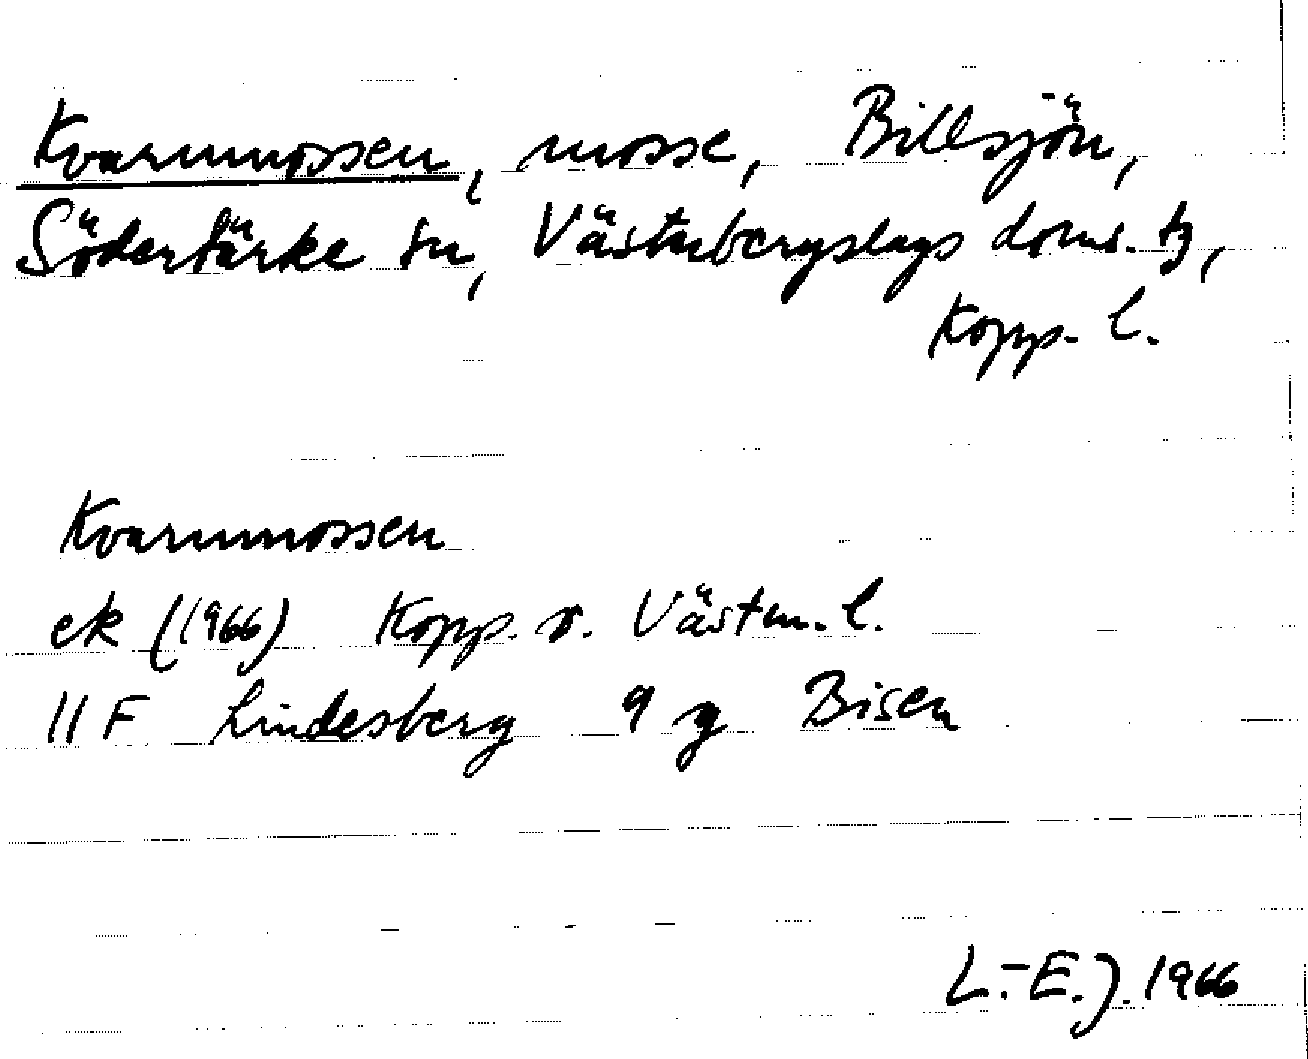 Kvarnmossen, mosse, Billsjön,
Söderbärke sn, Västerbergslags doms. tg,
Kopp. l.
Kvarnmossen
ek (1966) Kopp. o. Västm. l.
11 F Lindesberg 9 g Bisen
L.-E. J. 1966